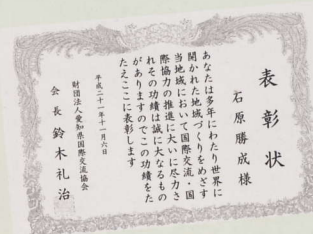 表彰状
石原勝成様
あなたは多年にわたり世界に
開かれた地域づくりをめざす
当地域において国際交流・国
際協力の推進に大いに尽力さ
れその功績は誠に大なるもの
がありますのでこの功績をた
たえここに表彰します
平成二十一年十一月六日
財団法人愛知県国際交流協会
会長 鈴木礼治